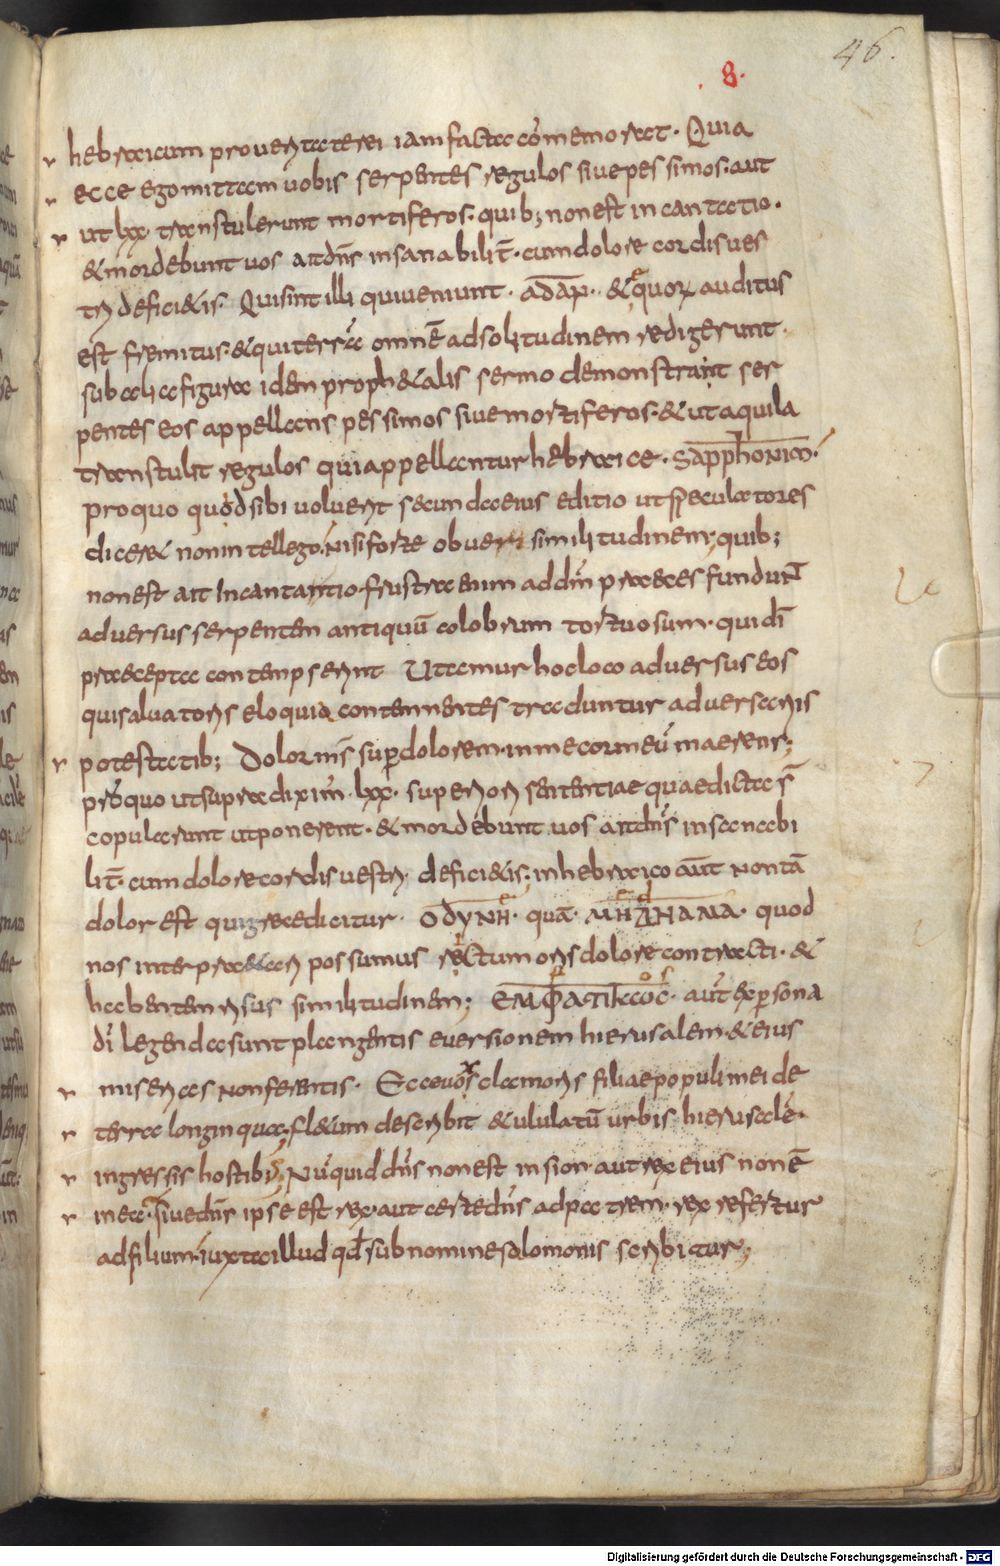 46.
8.
hebraicum proueritate rei iam facta cõmemorat. Quia
ecce ego mittam uobis serpentes regulos siue pessimos. aut
ut lxx. transtulerunt mortiferos. quib; non est incantatio.
& mordebunt uos ait dn̄s insanabilit̄. cum dolore cordis ues
tri defici&is. Quisint illi qui ueniunt. adāp. & equorꝝ auditus
est fremitus. & qui terrā omnē ad solitudinem redigerunt.
sub alia figura idem proph&alis sermo demonstrauit ser
pentes eos appellans pessimos siue mortiferos. & ut aquila
transtulit regulos qui appellantur hebraice. sapphonim.
pro quo quod sibi uoluerit secunda eius editio ut speculatores
diceret non intellego. Nisi forte ob uerbi similitudinem; quib;
non est ait Incantantio. frustra enim ad dm̄ praeces fundunt
aduersus serpentem antiquū colobrum tortuosum. qui dī
praecepta contempserunt Utamur hoc loco aduersus eos
qui saluatoris eloquia contemnentes traduntur aduersariis
potestatib; Dolor m̄s sup dolorem. in me cor meū maerens;
pro quo ut supra diximꝰ. lxx. superiori sententiae quae dicta s̄
copularunt ut ponerent. & mordebunt uos ait dn̄s insanabi
lit̄. cum dolore cordis uestri. defici&is; in hebraico aūt non tā
dolor est qui graece dicitur. ΟΔΥΝΗ. quā. ΜΗΔΙΗΑΜΑ. quod
nos interpraetari possumus rictum oris dolore contracti. &
habentem risus similitudinem; ΕΜΦΑΤΙΚΩC. aūt ex persona
dī legenda sunt plangentis euersionem hierusalem. & eius
miserias non ferentis. Ecce uox clamoris filiae populi mei de
terra longinqua; fl&um describit & ululatū urbis hierusalē.
ingressis hostib;. Nūquid dn̄s non est in sion aut rex eius non ē
in ea. siue dn̄s ipse est rex. aut certe dn̄s ad patrem. rex refertur
ad filium. iuxta illud qd̄ sub nomine solomonis scribitur;
Digitalisierung gefördert durch die Deutsche Forschungsgemeinschaft - DFG